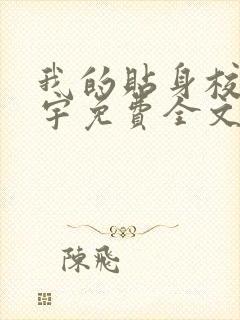 我的貼身校
宇免費全文
陳飛